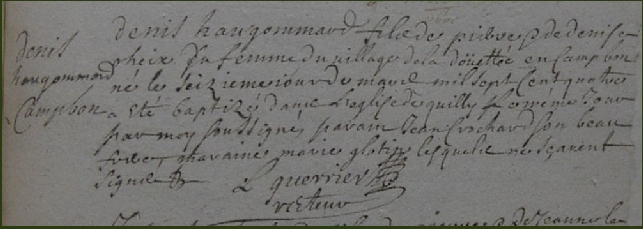 denis haugommard fils de pierre & de denise
denis
haugommard
Campbon
rheix sa femme du village de la doüettée en Campbon
né le seizieme iour de mars mil sept cent quatre
a eté baptizé dans l'eglise de quilly le meme Jour
par moy soussigné, parain Jean frochard son beau
frere, maraine marie glotin lesquels ne sçavent
signer
L guerrier
recteur